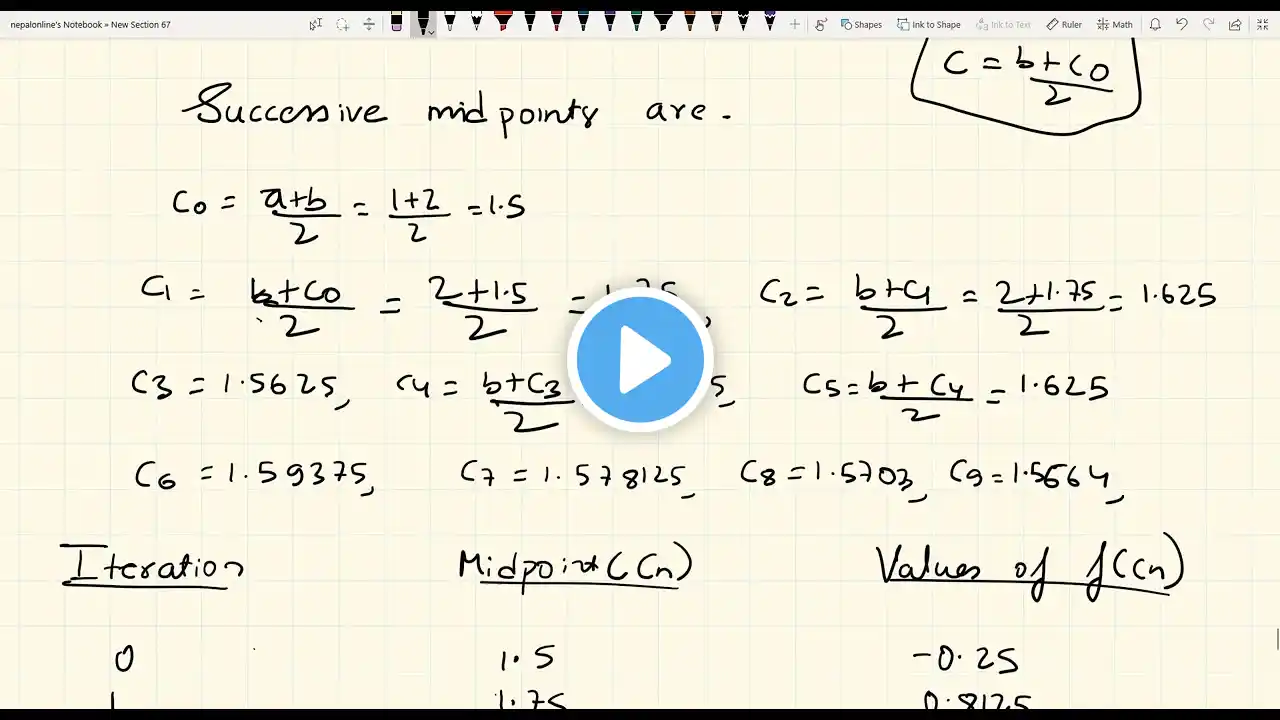 nepalonline's Notebook » New Section 67
Shapes Ink to Shape Ink to Text Ruler Math
C = b+C0/2
Successive midpoints are.
C0 = a+b/2 = 1+2/2 = 1.5
C1 = b+C0/2 = 2+1.5/2 =
C2 = b+C1/2 = 2+1.75/2 = 1.625
C3 = 1.5625, C4 = b+C3/2 5, C5 = b+C4/2 = 1.625
C6 = 1.59375, C7 = 1.578125, C8 = 1.5703, C9 = 1.5664,
Iteration Midpoint (Cn) Values of f(Cn)
0 1.5 -0.25
1 1.75 0.8125